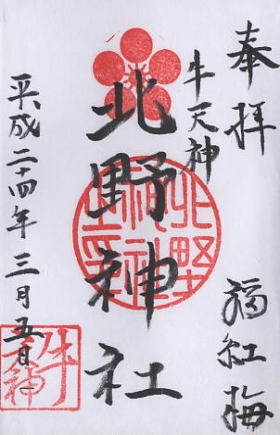 奉拝
牛天神
紅梅
北野神社
平成二十四年三月五日
北野神社之印
牛天神